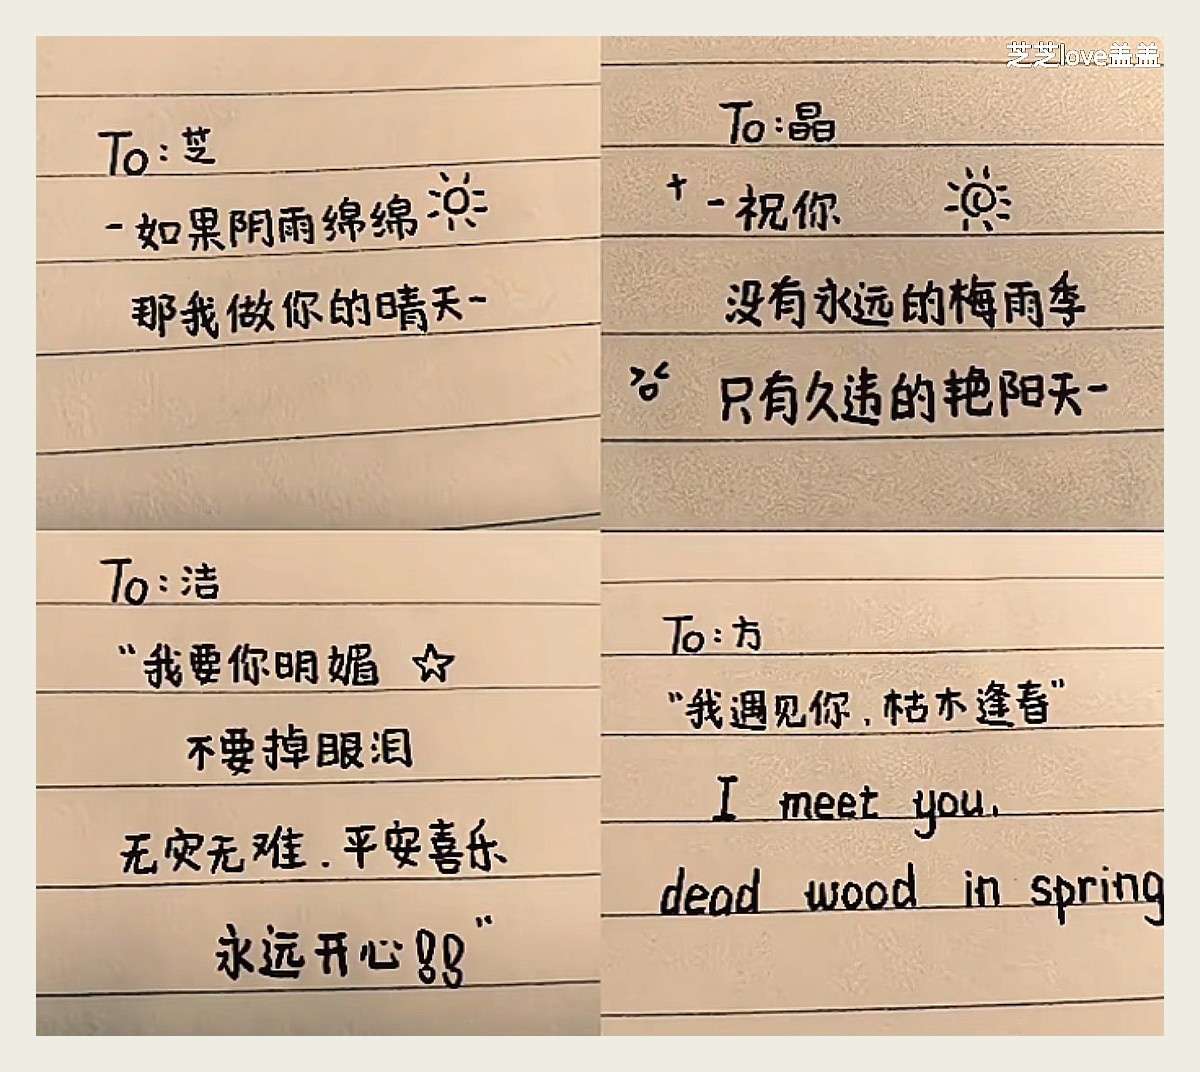 芝芝love盖盖
To:芝
-如果阴雨绵绵
那我做你的晴天-
To:晶
-祝你
没有永远的梅雨季
只有久违的艳阳天-
To:洁
“我要你明媚
不要掉眼泪
无灾无难.平安喜乐
永远开心!!”
To:方
“我遇见你,枯木逢春”
I meet you.
dead wood in spring